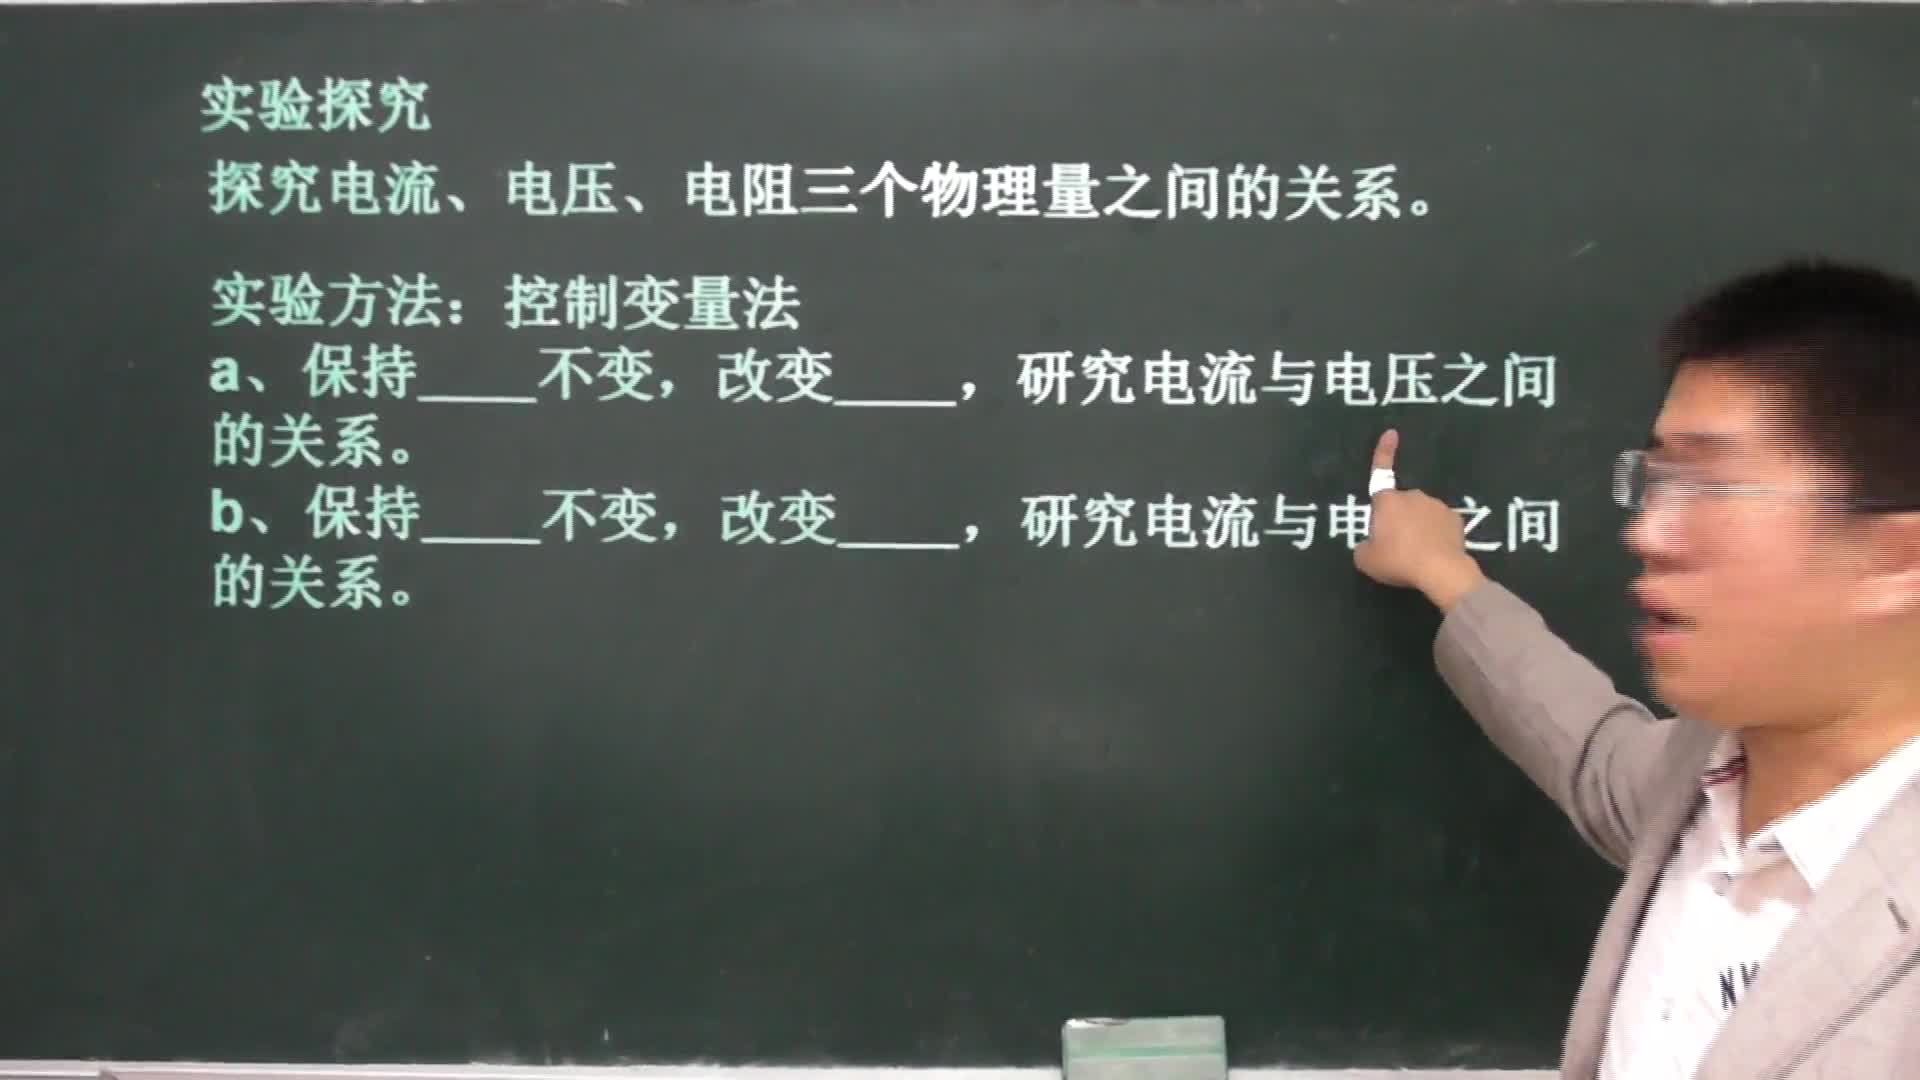 实验探究
探究电流、电压、电阻三个物理量之间的关系。
实验方法：控制变量法
a、保持____不变，改变____，研究电流与电压之间
的关系。
b、保持____不变，改变____，研究电流与电之间
的关系。